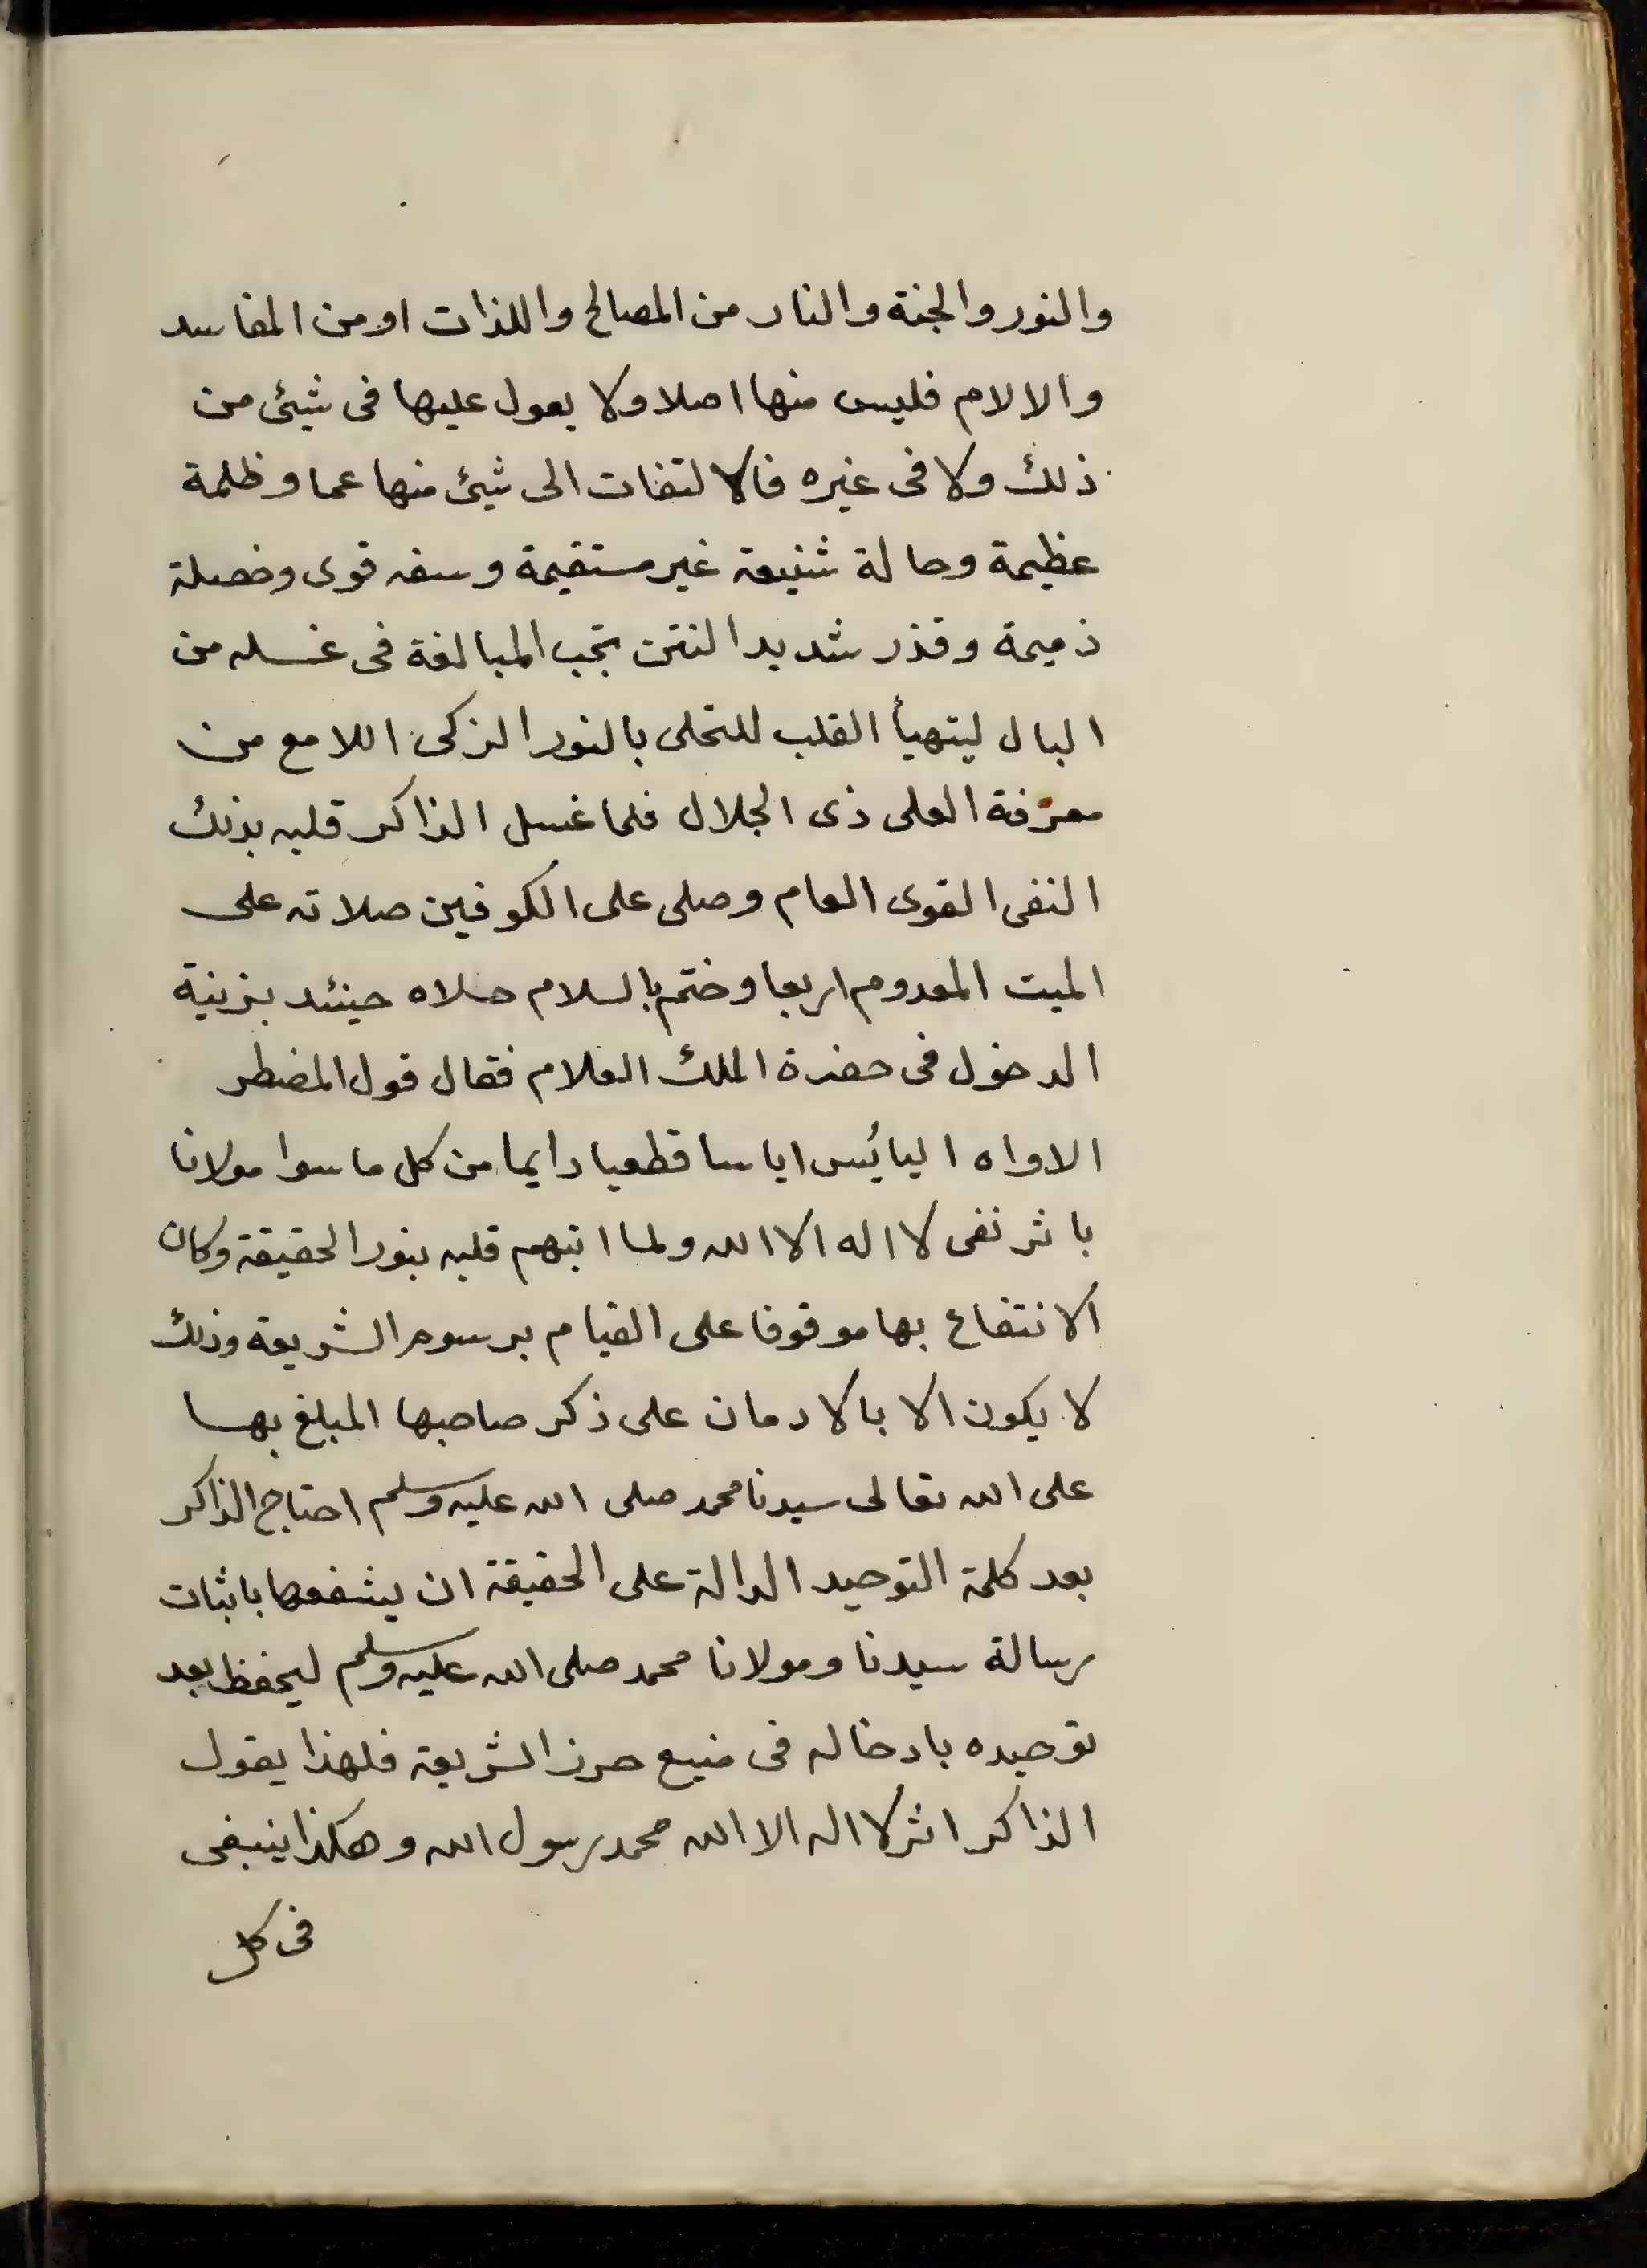 والنور والجنة والنار من المصالح واللذات او من المفاسد
والالام فليس منها اصلا ولا يعول عليها فى شيئ من
ذلك ولا فى غيره فالالتفات الى شيئ منها عما وظلمة
عظيمة وحالة شنيعة غير مستقيمة وسفه قوى وخصلة
ذميمة وقذر شديد النتن تجب المبالغة فى غسله من
البال ليتهيأ القلب للتحلى بالنور الزكى اللامع من
معرفة العلى ذى الجلال فلما غسل الذاكر قلبه بذلك
النفى القوى العام وصلى على الكونين صلاته على
الميت المعدوم اربعا وختم بالسلام حلاه حينئد بزينة
الدخول فى حضرة الملك العلام فقال قول المضطر
الاواه اليائس اياسا قطعيا دايما من كل ما سوا مولانا
باثر نفى لا اله الا الله ولما ابتهم قلبه بنور الحقيقة وكان
الانتفاع بها موقوفا على القيام برسوم الشريعة وذلك
لا يكون الا بالادمان على ذكر صاحبها المبلغ بها
على الله تعالى سيدنا محمد صلى الله عليه وسلم احتاج الذاكر
بعد كلمة التوحيد الدالة على الحقيقة ان يشفعها باثبات
رسالة سيدنا ومولانا محمد صلى الله عليه وسلم ليحفظ بعد
توحيده بادخاله فى منيع حرز الشريعة فلهذا يقول
الذاكر اثر لا اله الا الله محمد رسول الله وهكذا ينبغى
فى كل